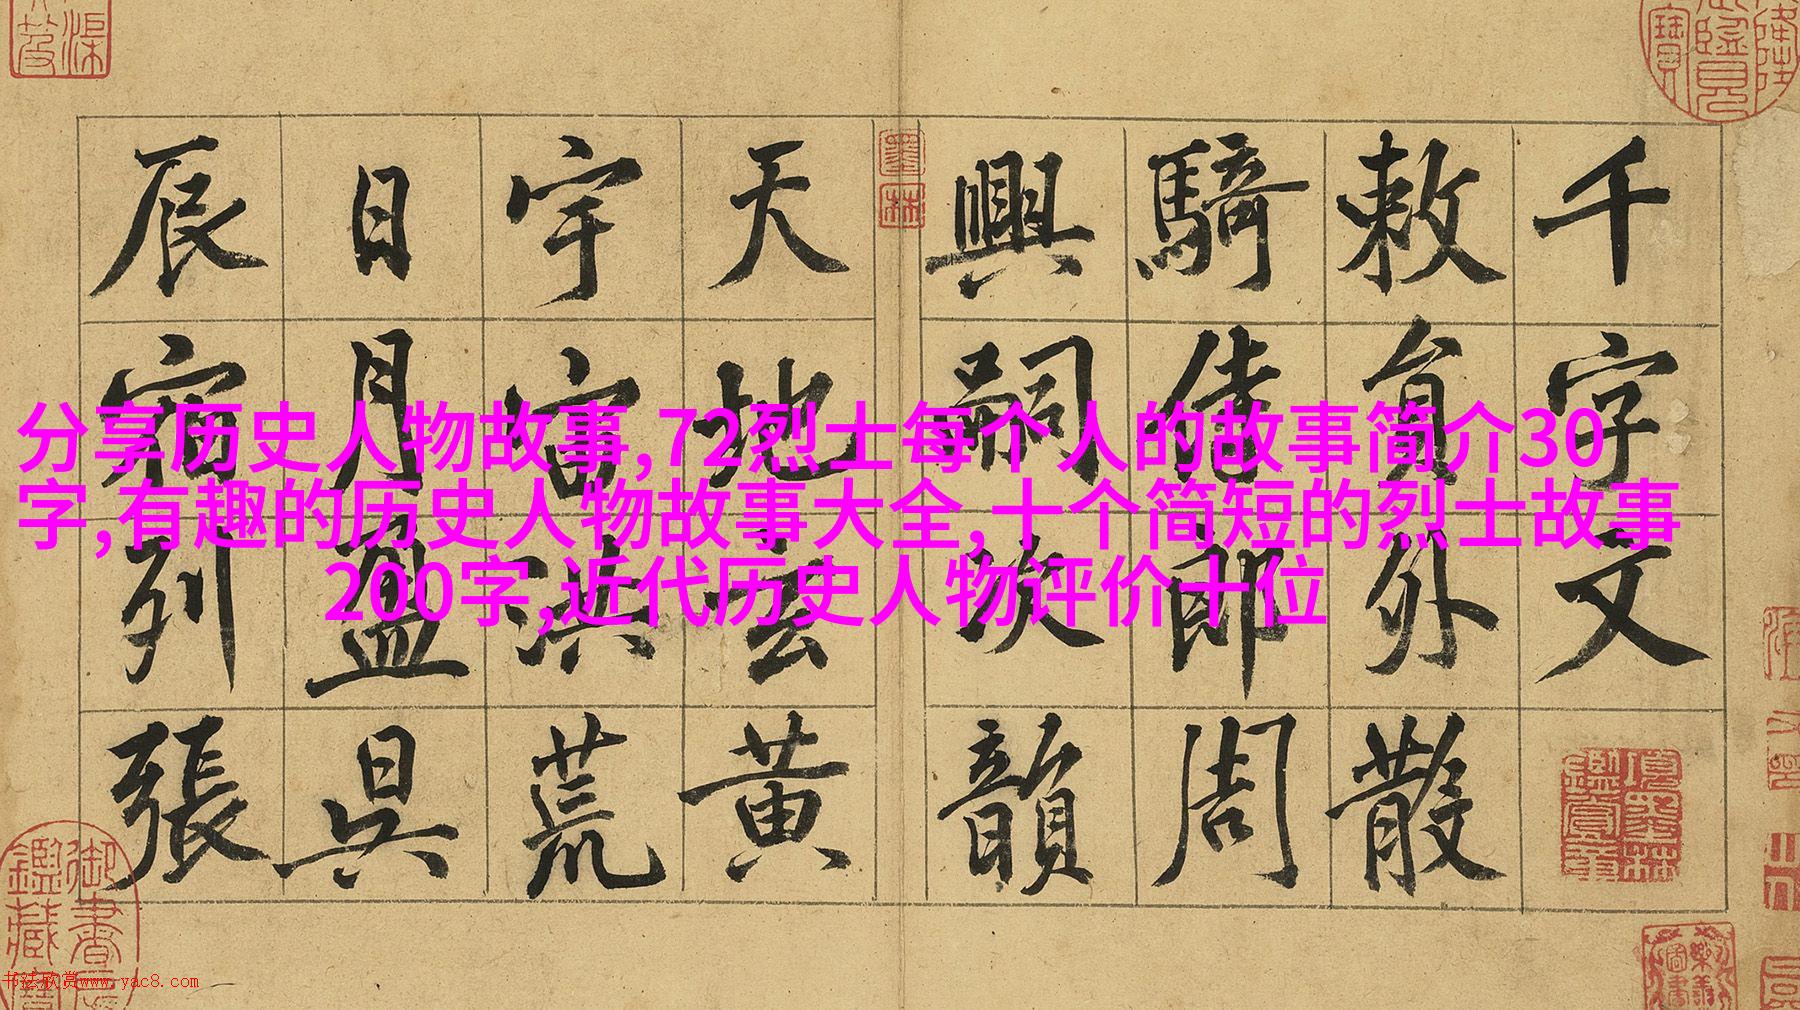 分享历史人物故事,72烈士每个人的故事简介30
字,有趣的历史人物故事大全,十个简短的烈士故事
200字,近代历史人物评价十位
千字文
敕員外散
騎侍郎周
興嗣次韻
天地玄黄
宇宙洪荒
日月盈昃
辰宿列張
墨林
項墨林鑑賞章
书法欣赏www.yac8.com